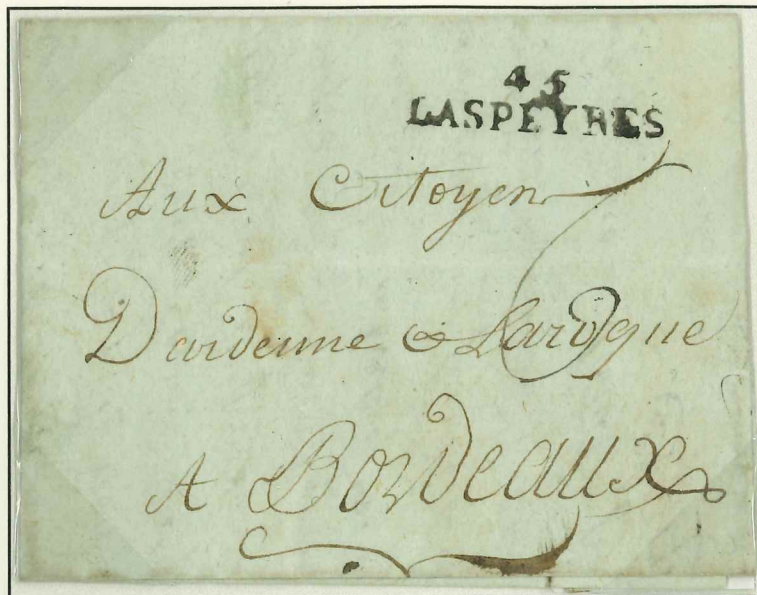 45
LASPEYRES
Aux Citoyen
Dardenne & Laroque
A Bordeaux